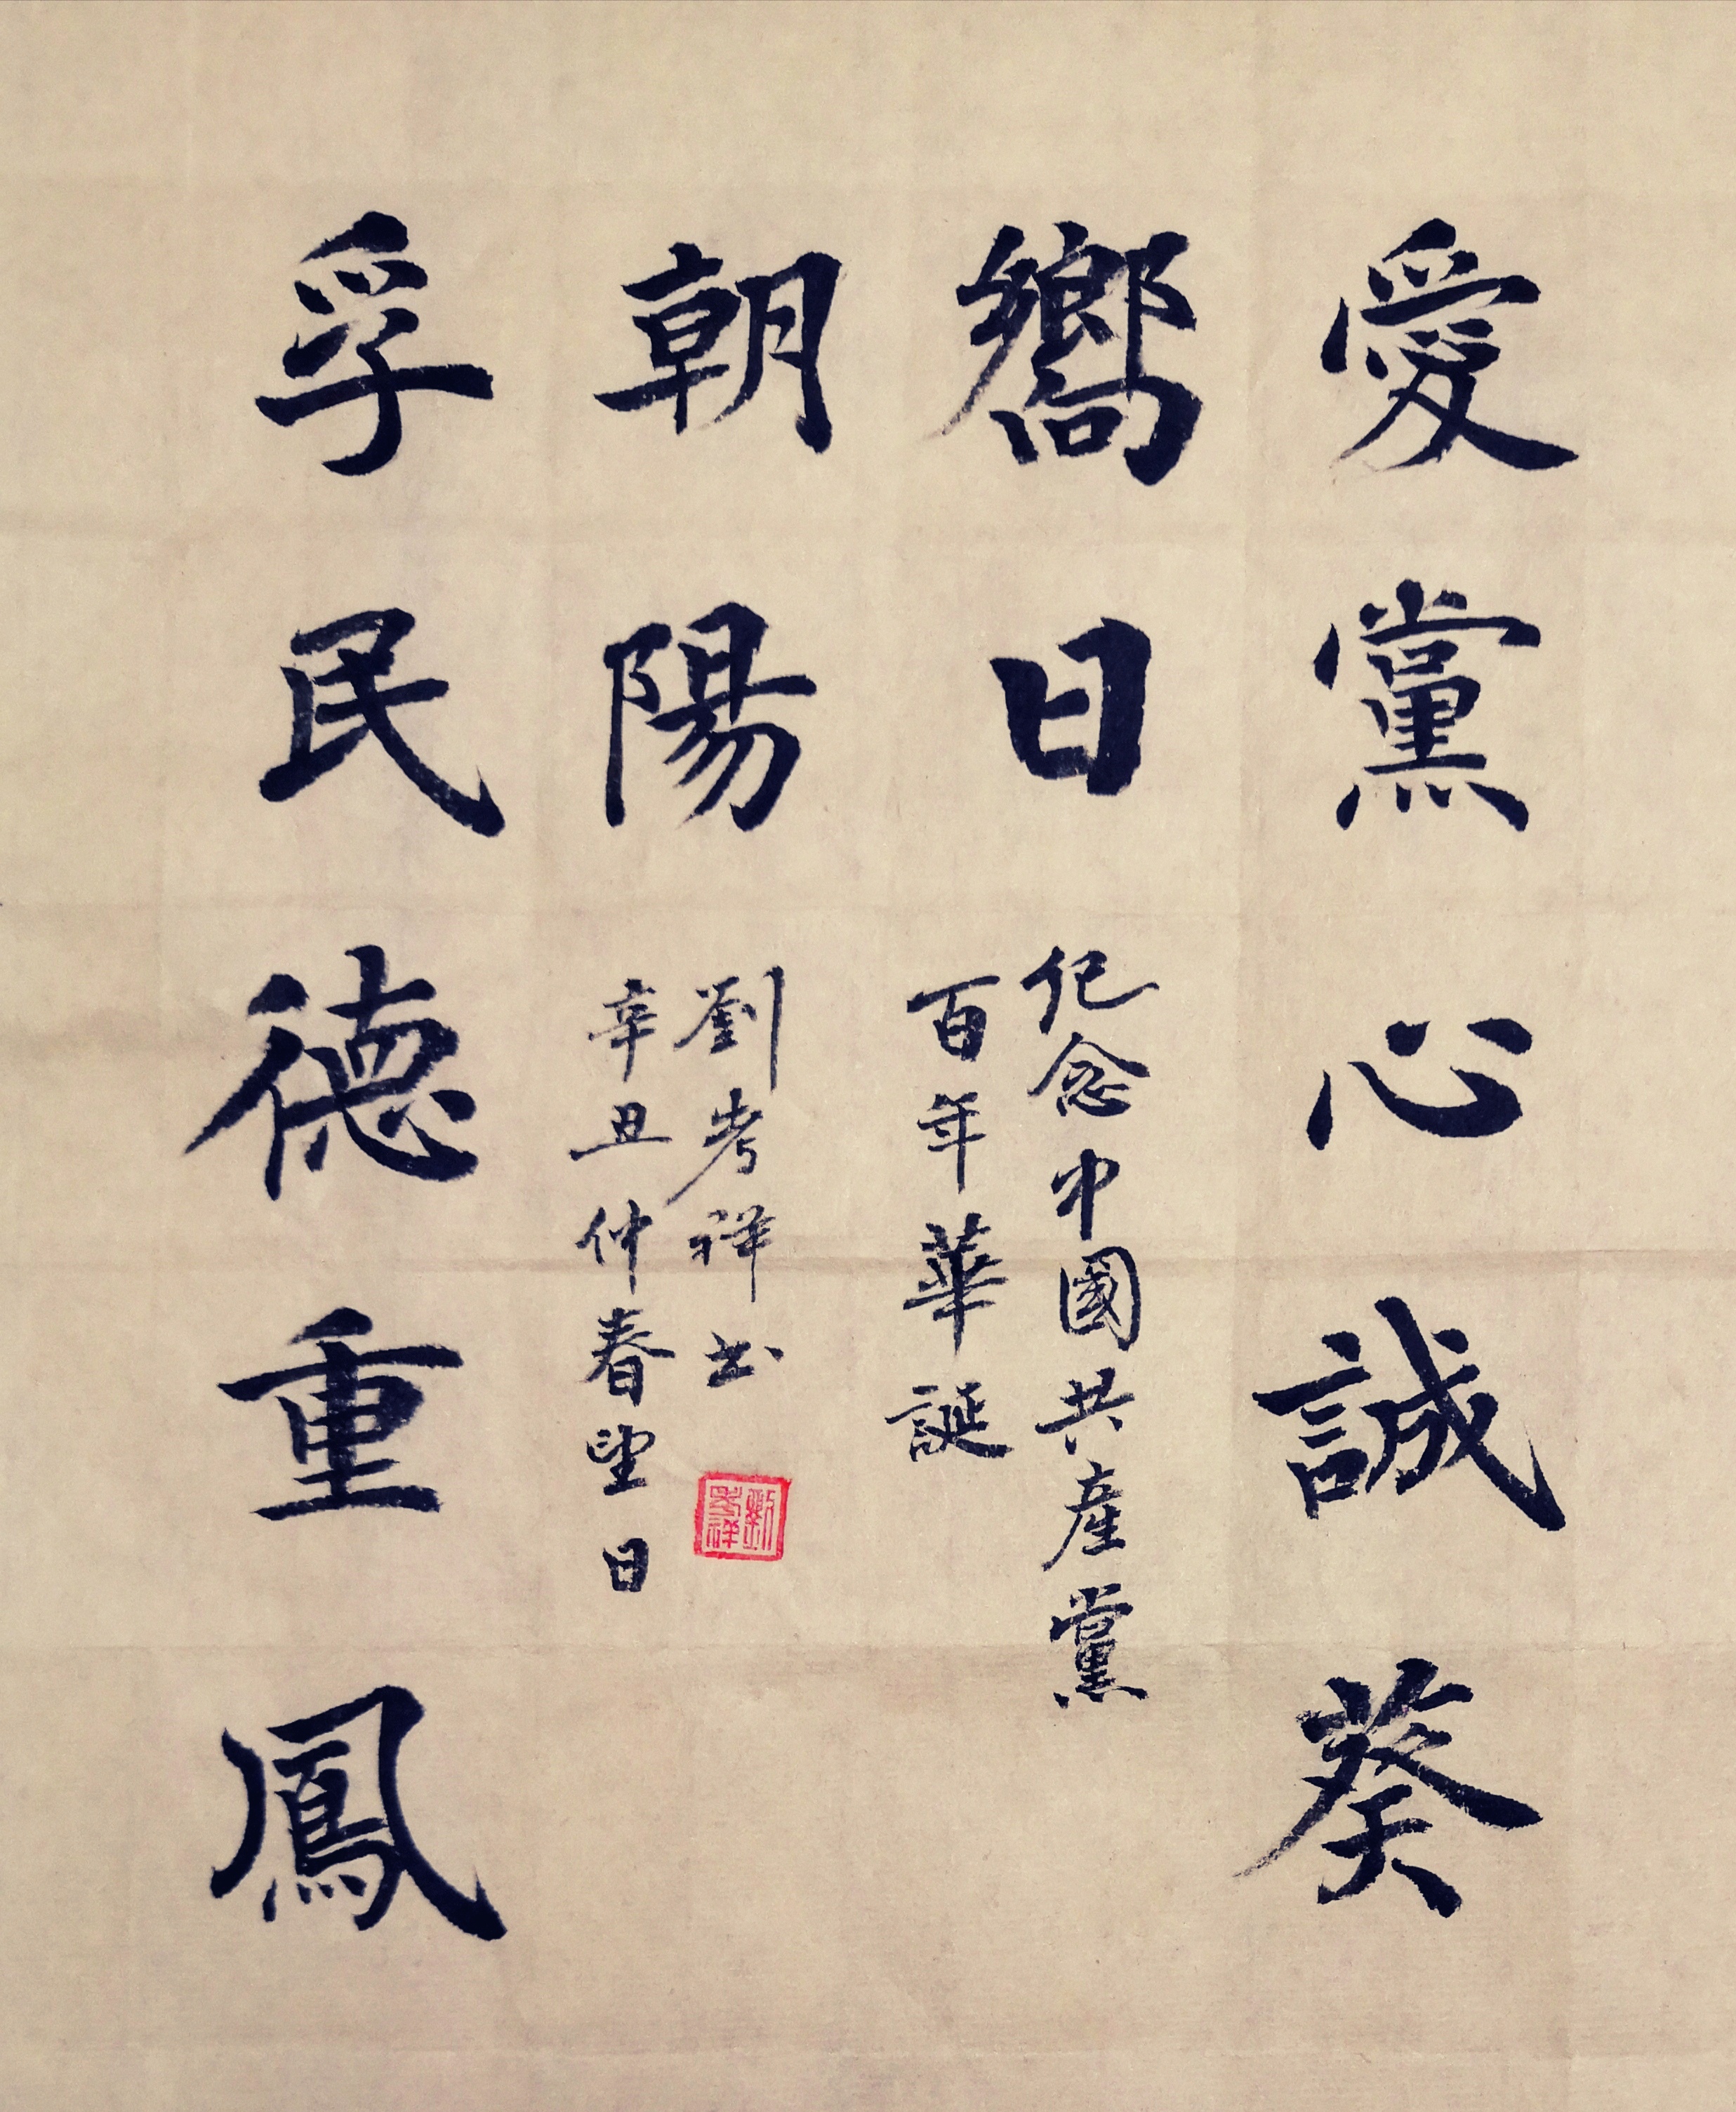 愛黨心誠葵
嚮日
纪念中國共産黨
百年華誕
孚民德重鳳
朝陽
劉考祥书
辛丑仲春望日
劉考祥